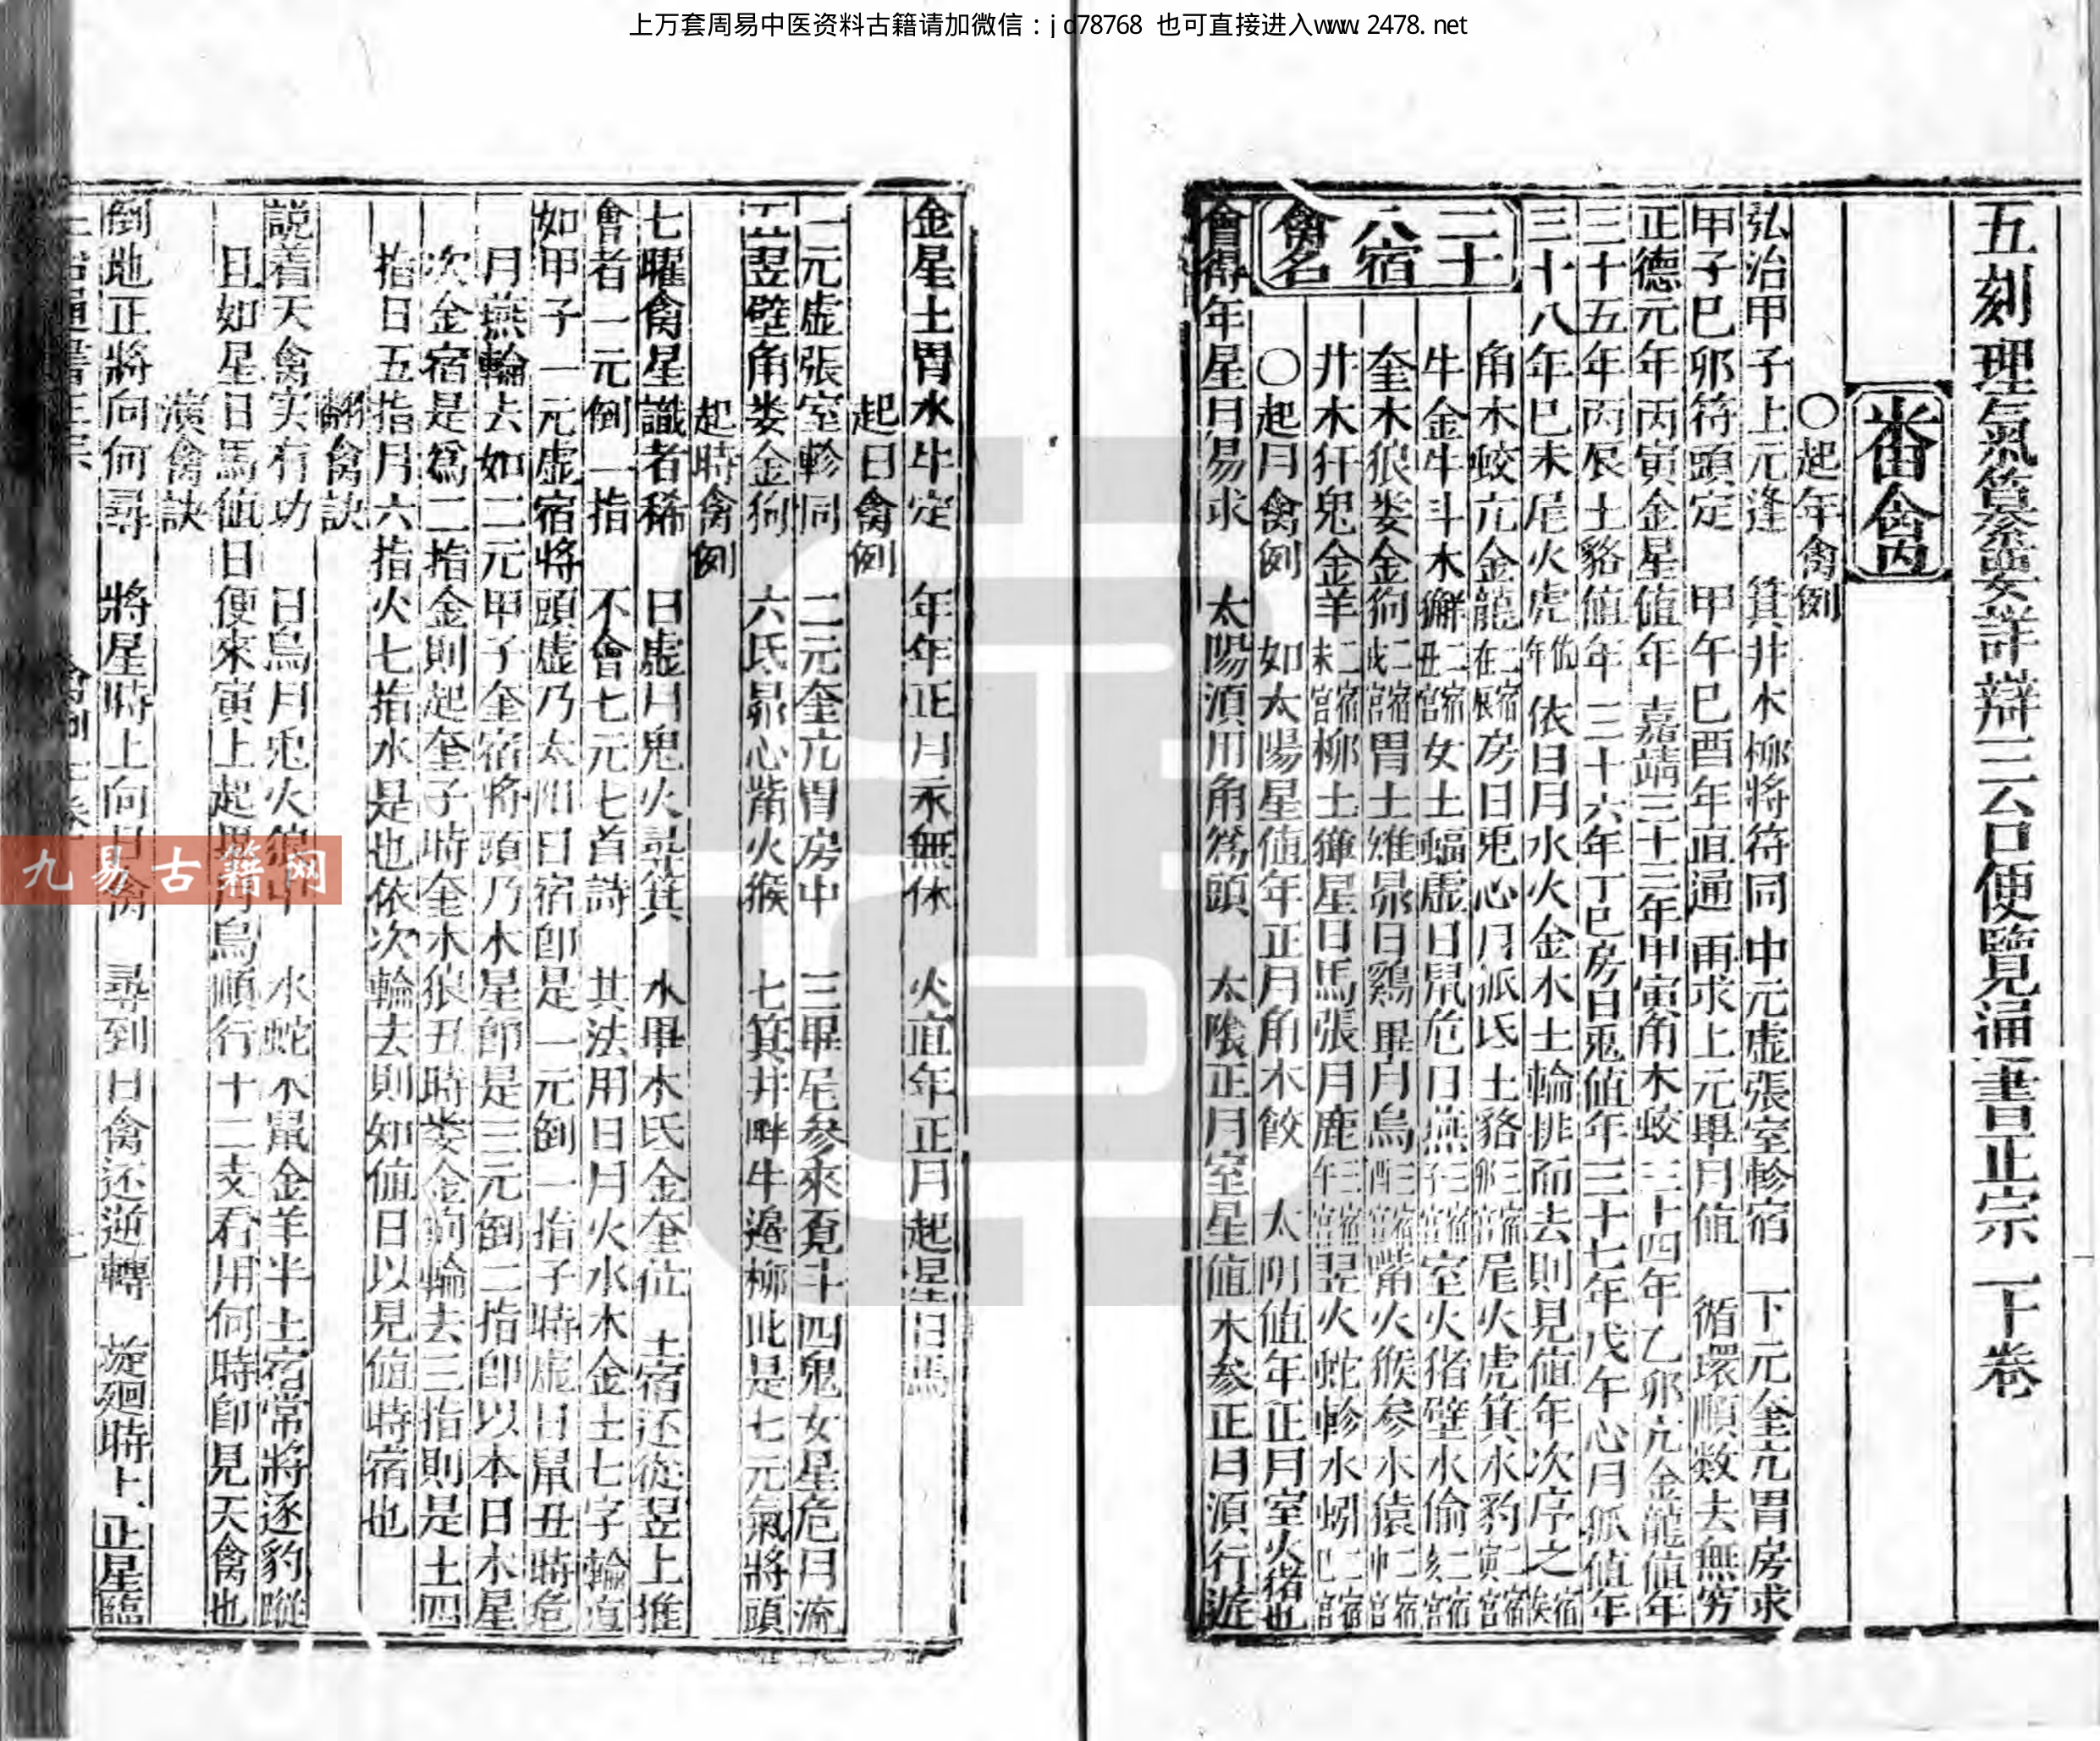 上万套周易中医资料古籍请加微信：jd78768 也可直接进入www.2478.net
五刻理氣纂要詳辯三台便覽通書正宗一十卷
番禽內
〇起年禽例
弘治甲子上元逢 箕井木柳將符同 中元虚張室軫宿 下元奎亢胃房求
甲子巳卯符頭定 甲午巳酉年直通 再求上元畢月值 循環順数去無穷
正德元年丙寅金星值年 嘉靖三十三年甲寅角木蛟 三十四年乙卯亢金龍值年
三十五年丙辰土貉值年 三十六年丁巳房日兎值年 三十七年戊午心月狐值年
三十八年巳未尾火虎值年 依日月水火金木土輪排而去則見值年次序之宿矣
二十八宿禽名
角木蛟亢金龍二宿在辰房日兎心月狐氐土貉三宿卯宫尾火虎箕水豹二宿寅宫
牛金牛斗木獬二宿丑宫女土蝠虚日鼠危日燕三宿子宫室火猪壁水偷二宿亥宫
奎木狼娄金狗二宿戌宫胃土雉昴日鷄畢月烏三宿酉宫觜火猴参水猿二宿申宫
井木犴鬼金羊二宿未宫柳土獐星日馬張月鹿三宿午宫翌火蛇軫水蚓二宿巳宫
〇起月禽例 如太陽星值年正月角木餃 太阴值年正月室火猪也
會得年星月易求 太陽湏用角爲頭 太陰正月室星值 木参正月湏行遊
金星土胃水牛定 年年正月永無休 火直年正月起星日馬
起日禽例
一元虚張室軫同 二元奎亢胃房中 三畢尾參來覔斗 四鬼女星危月流
五翌壁角娄金狗 六氐昴心觜火猴 七箕井畔牛邉柳此是七元氣將頭
起時禽例
七曜禽星識者稀 日虚月鬼火尋箕 水畢木氐金奎位 土宿还從翌上推
會者一元倒一指 不會七元七首詩 其法用日月火水木金土七字輪直
如甲子一元虚宿將頭虚乃太阳日宿卽是一元倒一指子時虚日鼠丑時危
月燕輪去如二元甲子奎宿將頭乃木星卽是三元倒二指卽以本日木星
次金宿是爲二指金則起奎子時奎木狼丑時娄金狗輪去三指則是土四
指日五指月六指火七指水是也依次輪去則如值日以見值時宿也
翻禽訣
説着天禽实有功 日烏月兎火狼中 水蛇木鼠金羊半土宿常將逐豹蹤
且如星日馬值日便來寅上起畢月烏順行十二支看用何時卽見天禽也
演禽訣
倒地正將向何尋 將星時上向日禽 尋到日禽还逆轉 旋廻時上正星臨
九易古籍网